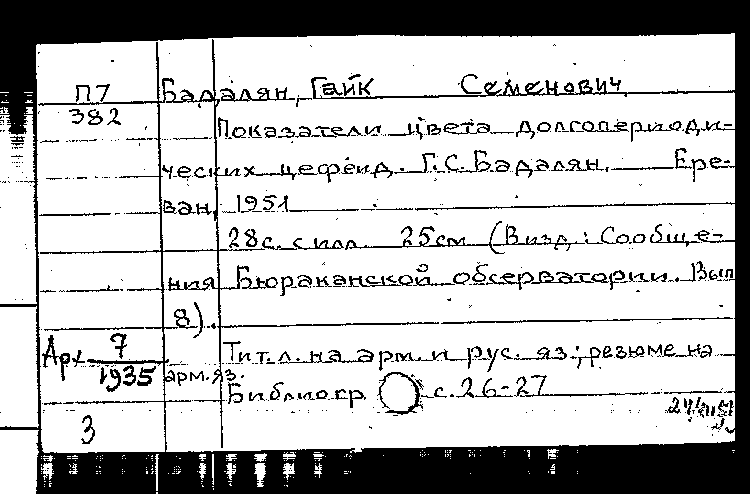 П7 Бадалян, Гайк Семенович
382
Показатели цвета долгопериоди-
ческих цефеид. Г.С. Бадалян. Ере-
ван, 1951
28с. с илл. 25см (В изд: Сообще-
ния Бюраканской обсерватории. Вып
8).
Арх 7/1935
Тит. л. на арм. и рус. яз.; резюме на
арм. яз.
Библиогр с. 26-27
3